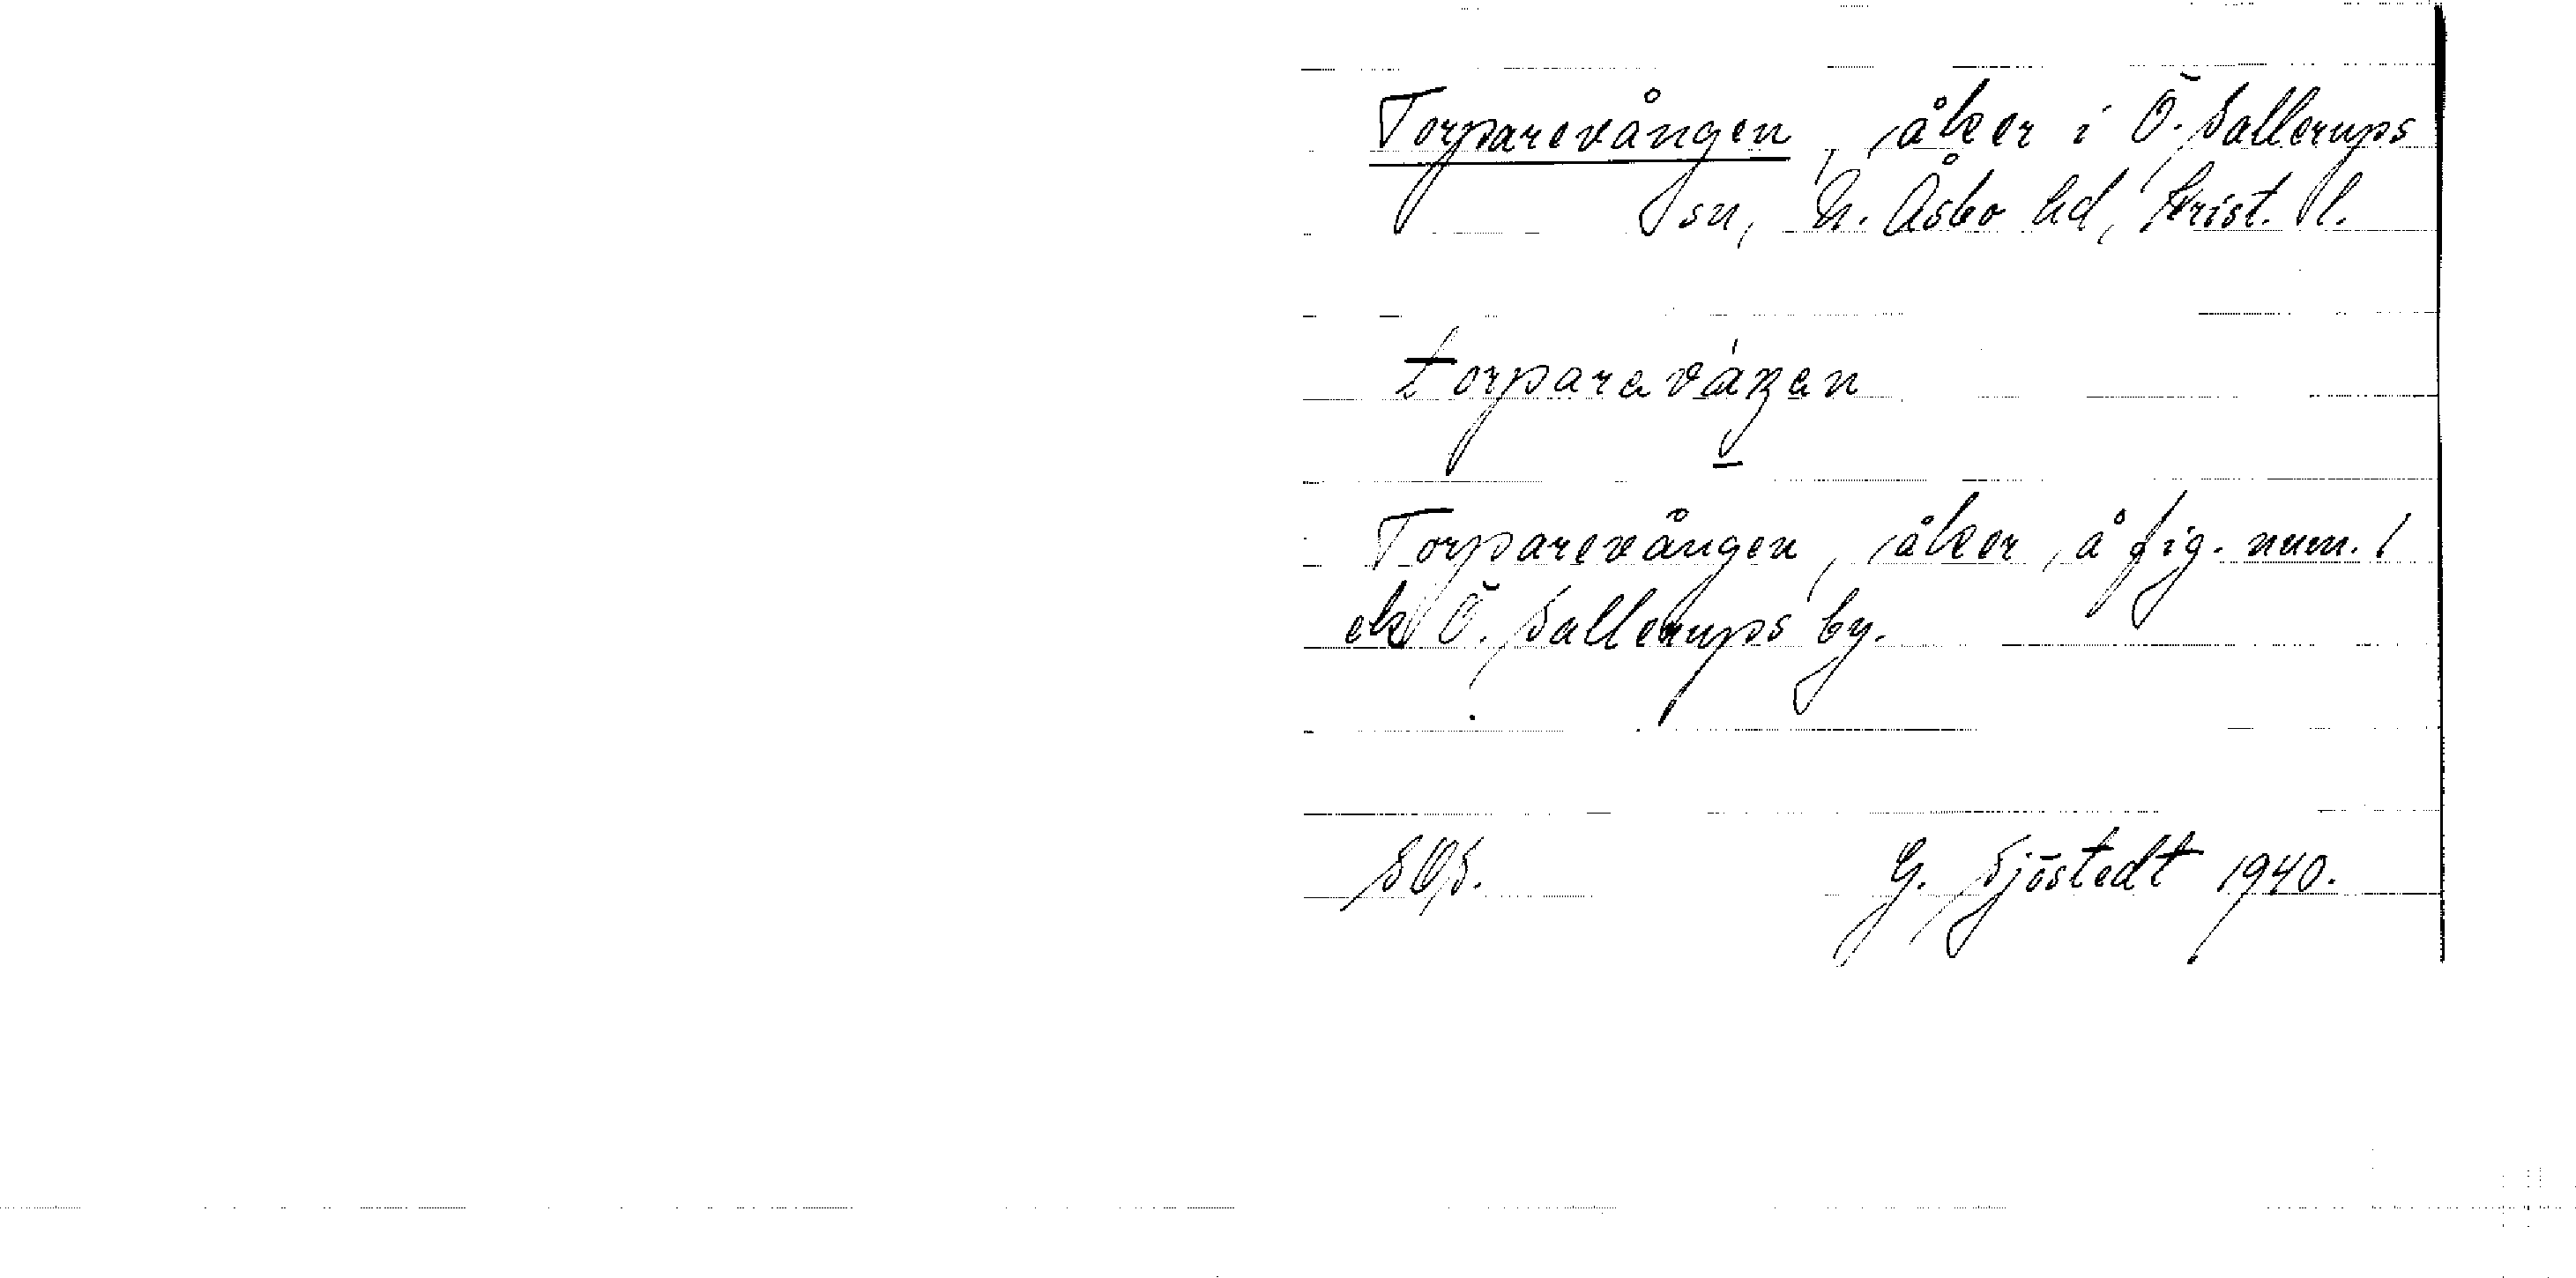 Torparevången, åker i Ö. Sallerups
sn, N. Åsbo hd, Krist. l.
torparavaŋan
Torparevången, åker, å fig. num. 1
ek Ö. Sallerups by.
SOS. G. Sjöstedt 1940.